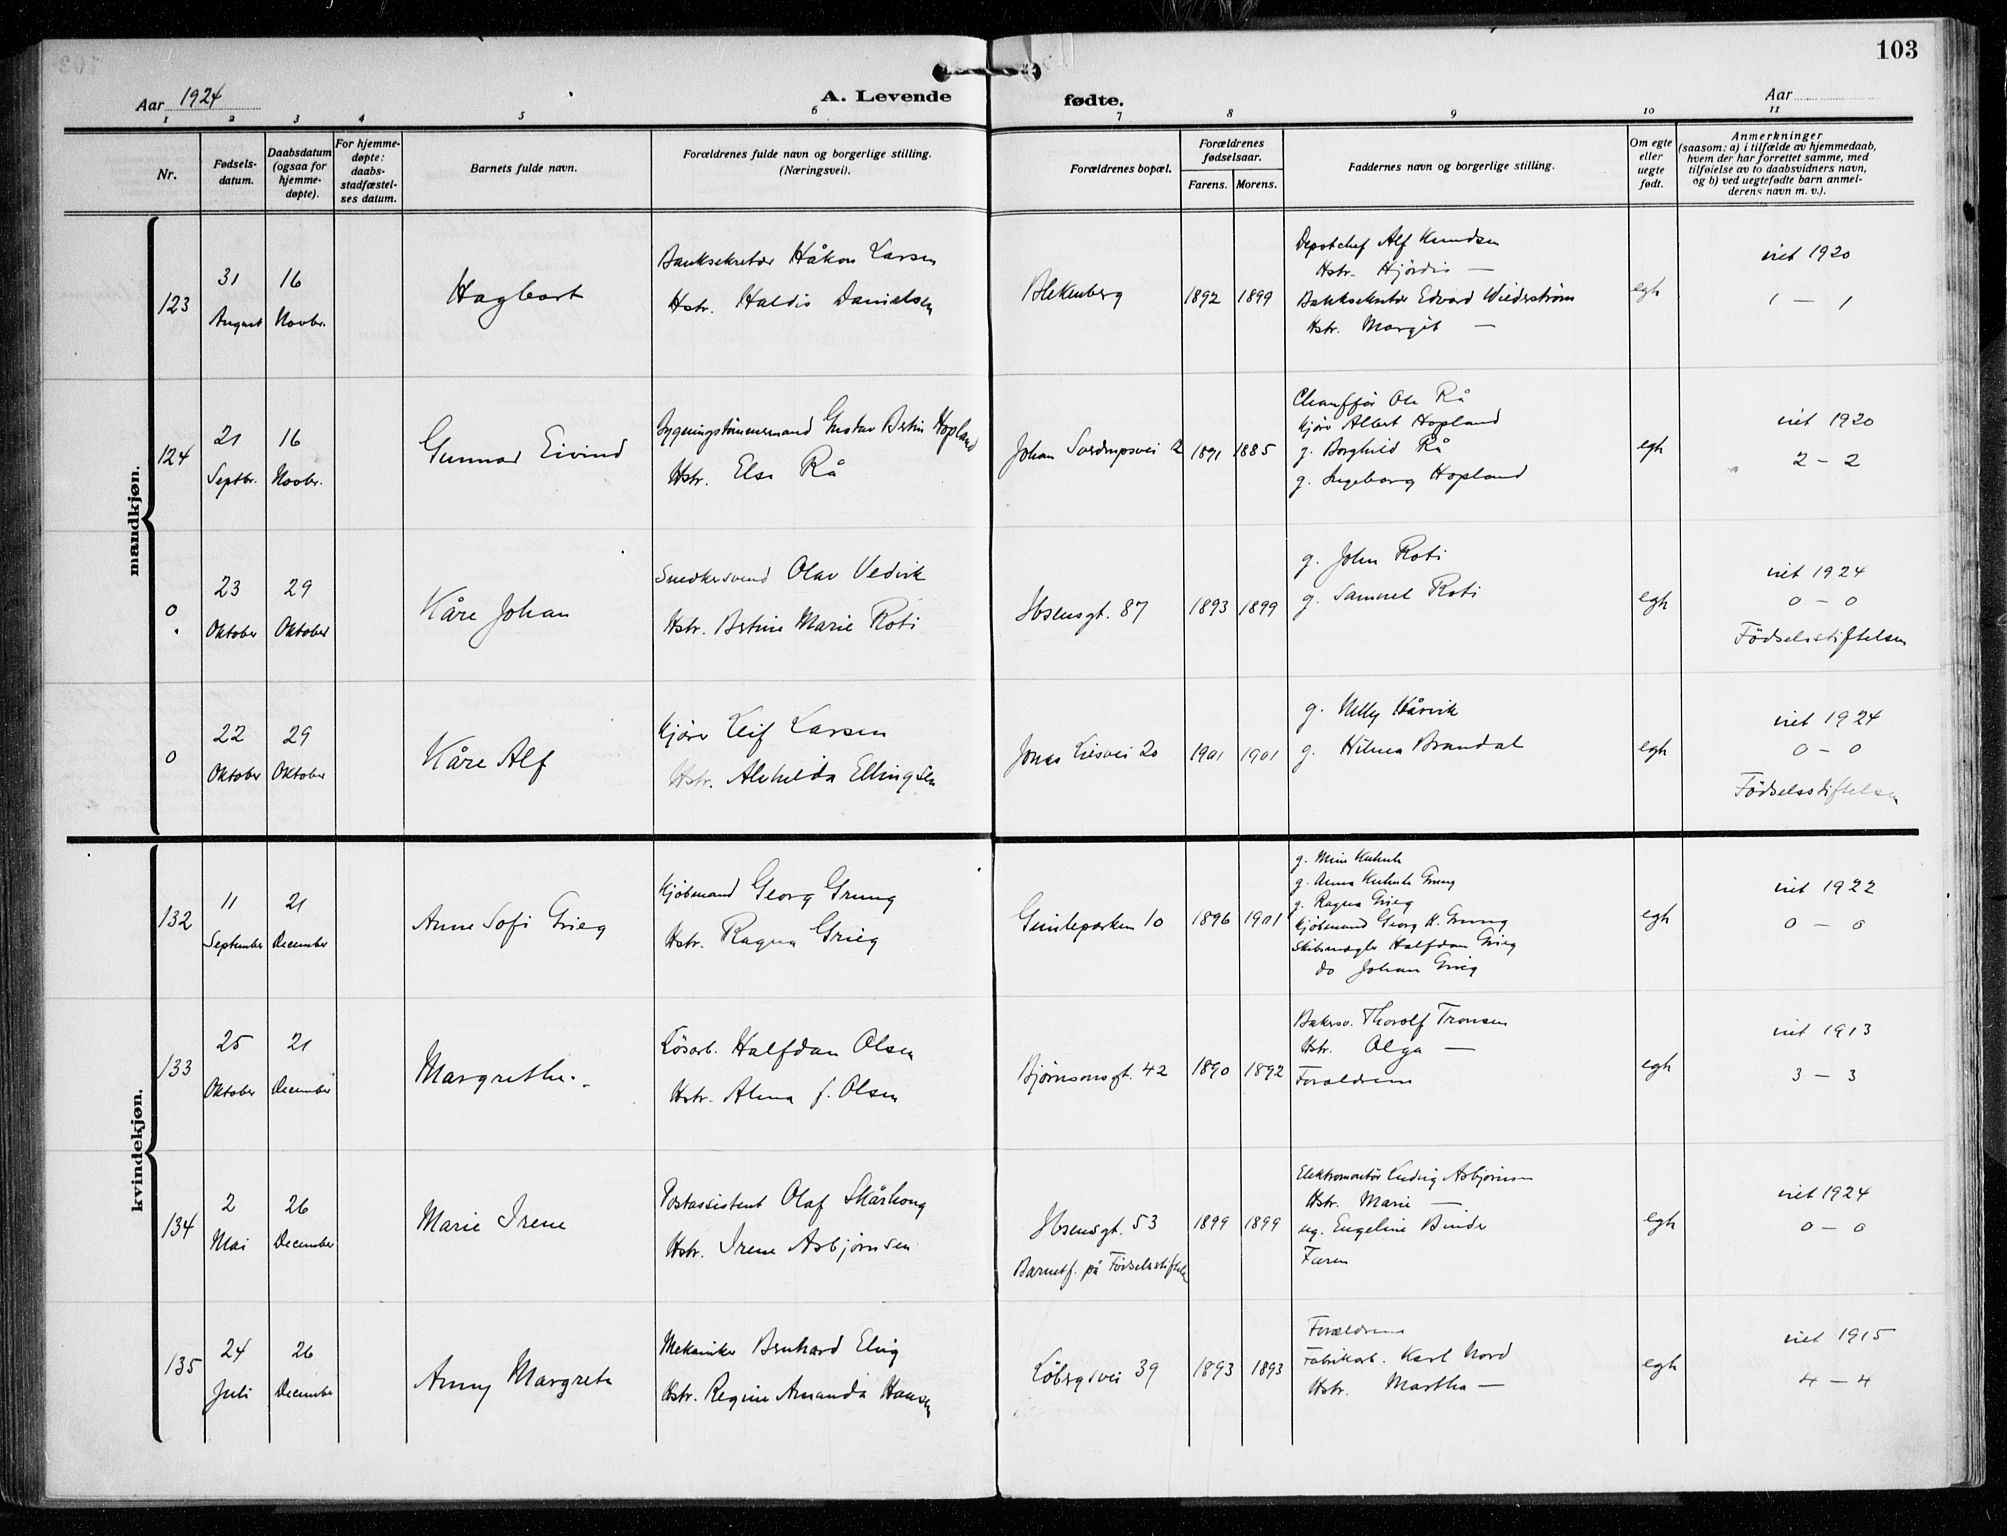 103
Aar 1924
A. Levende fødte.
Aar
1 2 3 4 5 6 7 8 9 10 11
Nr.
Fødsels-
datum.
Daabsdatum
(ogsaa for
hjemme-
døpte).
For hjemme-
døpte:
daabs-
stadfæstel-
ses datum.
Barnets fulde navn.
Forældrenes fulde navn og borgerlige stilling.
(Næringsvei).
Forældrenes bopæl.
Forældrenes
fødselsaar.
Farens. Morens.
Faddernes navn og borgerlige stilling.
Om egte
eller
uegte
født.
Anmerkninger
(saasom: a) i tilfælde av hjemmedaab,
hvem der har forrettet samme, med
tilføielse av to daabsvidners navn,
og b) ved uegtefødte barn anmel-
derens navn m. v.).
mandkjøn.
123
31
August
16
Novbr.
Hagbart
Banksekretær Håkon Larsen
Hstr. Haldis Danielsen
Blekenberg
1892 1899
Depotchef Alf Knudsen
Hstr. Hjördis —
Banksekretær Edvard Wiederstrøm
Hstr. Margit —
egte
viet 1920
1 – 1
124
21
Septbr.
16
Novbr.
Gunnar Eivind
Bygningstømmermand Gustav Bertin Hopland
Hstr. Else Rå
Johan Sverdrupsvei 12
1891 1885
Chaufför Ole Rå
Kjörer Albert Hopland
g. Borghild Rå
g. Ingeborg Hopland
egte
viet 1920
2 – 2
0
23
Oktober
29
Oktober
Kåre Johan
Snedkersvend Olav Vedvik
Hstr. Bertine Marie Roti
Ibsensgt. 87
1893 1899
g. John Roti
g. Samuel Roti
egte
viet 1924
0 – 0
Födselsstiftelsen
0
22
Oktober
29
Oktober
Kåre Alf
Kjörer Leif Larsen
Hstr. Alvhilda Ellingsen
Jonas Liesvei 20
1901 1901
g. Nelly Kårvik
g. Hilma Brandal
egte
viet 1924
0 – 0
Födselsstiftelsen
kvindekjøn.
132
11
September
21
December
Anne Sofi Grieg
Kjöbmand Georg Grung
Hstr. Ragna Grieg
Gimleparken 10
1896 1901
g. Mimi Kuhnle
g. Anna Kuhnle Grung
g. Ragna Grieg
Kjöbmand Georg H. Grung
Skibsmægler Halfdan Grieg
do Johan Grieg
egte
viet 1922
0 – 0
133
25
Oktober
21
December
Margrethe
Lösarb. Halfdan Olsen
Hstr. Alma f. Olsen
Bjørnsonsgt. 42
1890 1892
Bakersv. Thorolf Tronsen
Hstr. Olga —
Forældrene
egte
viet 1913
3 – 3
134
2
Mai
26
December
Marie Irene
Postassistent Olaf Skårhoug
Hstr. Irene Asbjørnsen
Ibsensgt. 53
Barnet f. på Födselsstiftelsen
1899 1899
Elektromontör Ludvig Asbjörnsen
Hstr. Marie —
ug. Engeline Binder
Faren
egte
viet 1924
0 – 0
135
24
Juli
26
December
Anny Margrete
Mekaniker Bernhard Elvig
Hstr. Regine Amanda Hansen
Löbergsvei 39
1893 1893
Forældrene
Fabrikarb. Karl Nord
Hstr. Martha —
egte
viet 1915
4 – 4